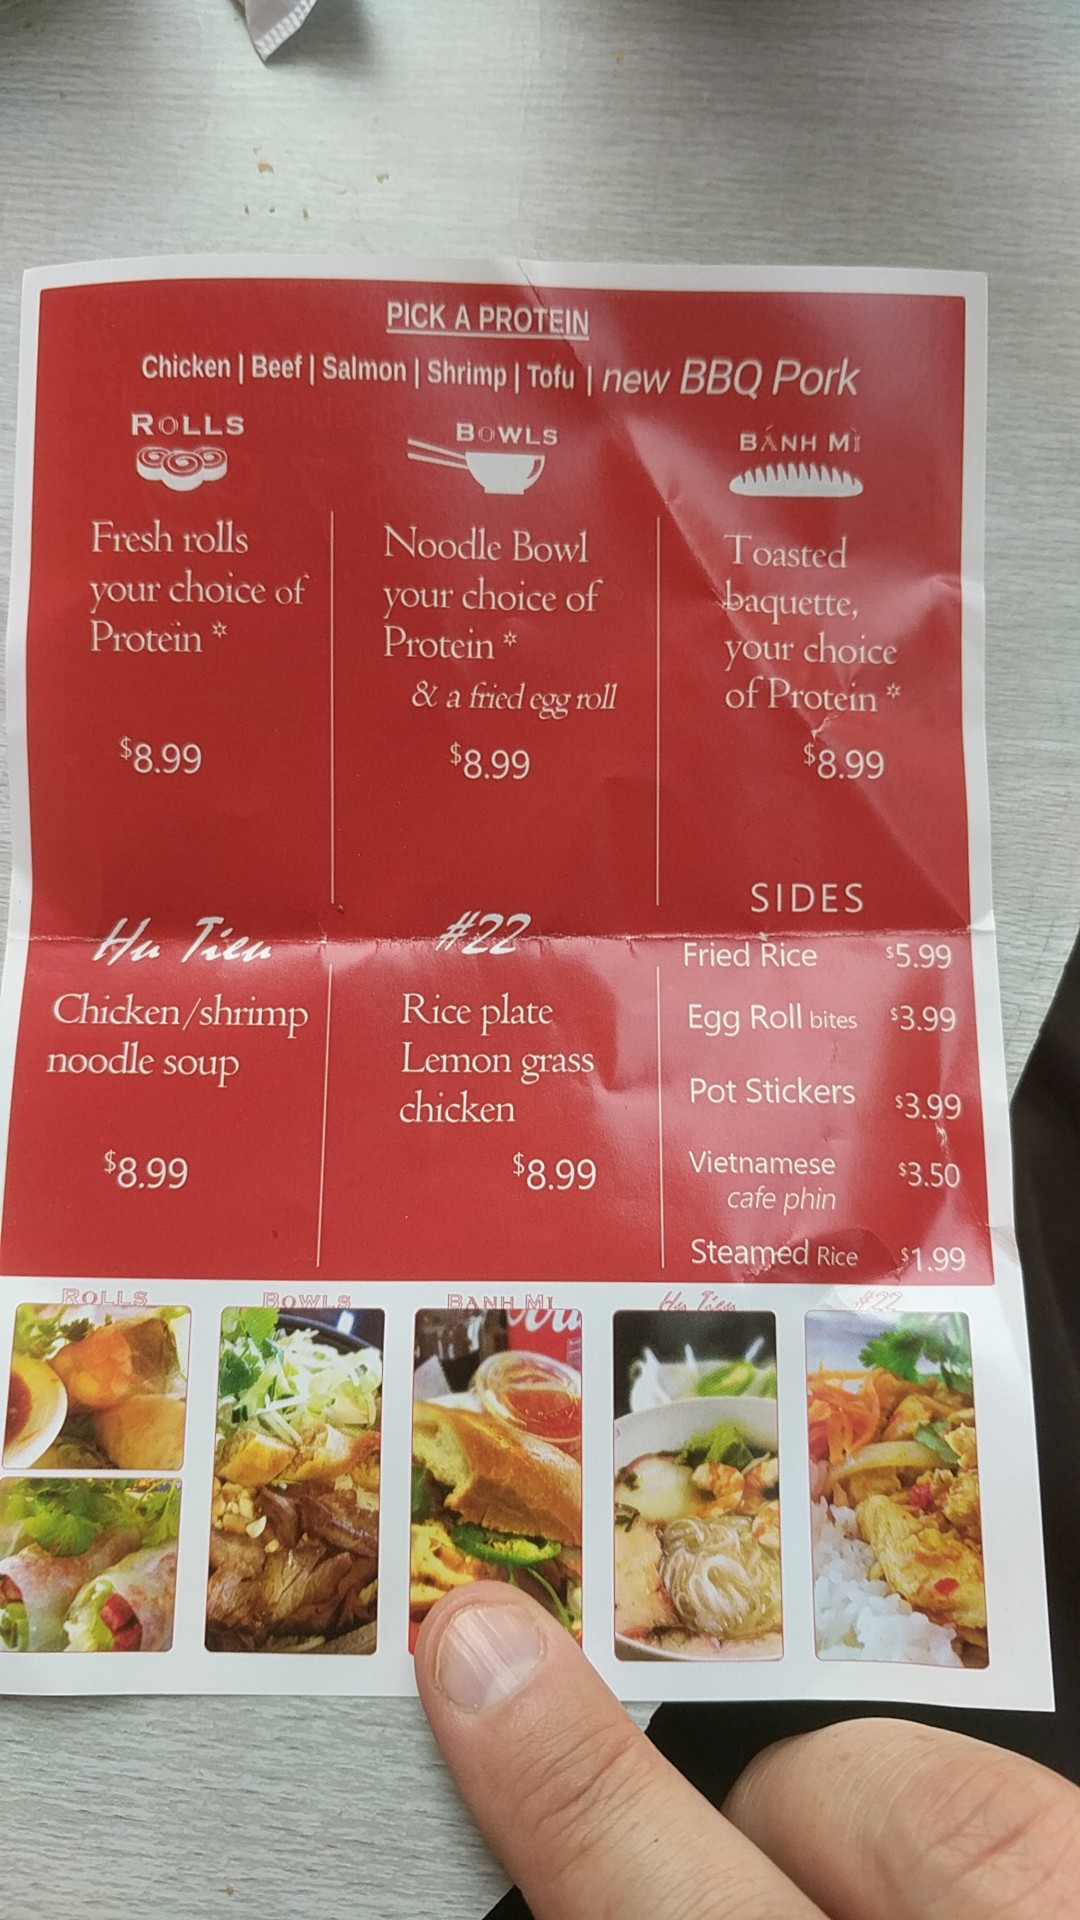 PICK A PROTEIN
Chicken | Beef | Salmon | Shrimp | Tofu | new BBQ Pork
ROLLS
Fresh rolls
your choice of
Protein *
$8.99
BOWLS
Noodle Bowl
your choice of
Protein *
& a fried egg roll
$8.99
BÁNH MÌ
Toasted
baquette,
your choice
of Protein *
$8.99
Hu Tieu
Chicken/shrimp
noodle soup
$8.99
#22
Rice plate
Lemon grass
chicken
$8.99
SIDES
Fried Rice $5.99
Egg Roll bites $3.99
Pot Stickers $3.99
Vietnamese $3.50
cafe phin
Steamed Rice $1.99
ROLLS BOWLS BANH MI Hu Tieu